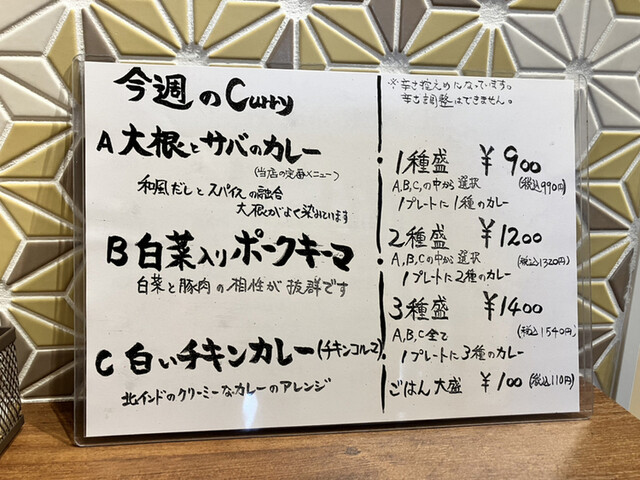 今週のCurry
A 大根とサバのカレー
(当店の定番メニュー)
和風だしとスパイスの融合
大根がよく染みています
B 白菜入りポークキーマ
白菜と豚肉の相性が抜群です
C 白いチキンカレー(チキンコルマ)
北インドのクリーミーなカレーのアレンジ
※辛さ控えめになっています。
辛さ調整はできません。
1種盛 ¥900
A,B,Cの中から選択 (税込990円)
1プレートに1種のカレー
2種盛 ¥1200
A,B,Cの中から選択 (税込1320円)
1プレートに2種のカレー
3種盛 ¥1400
A,B,C全て (税込1540円)
1プレートに3種のカレー
ごはん大盛 ¥100 (税込110円)